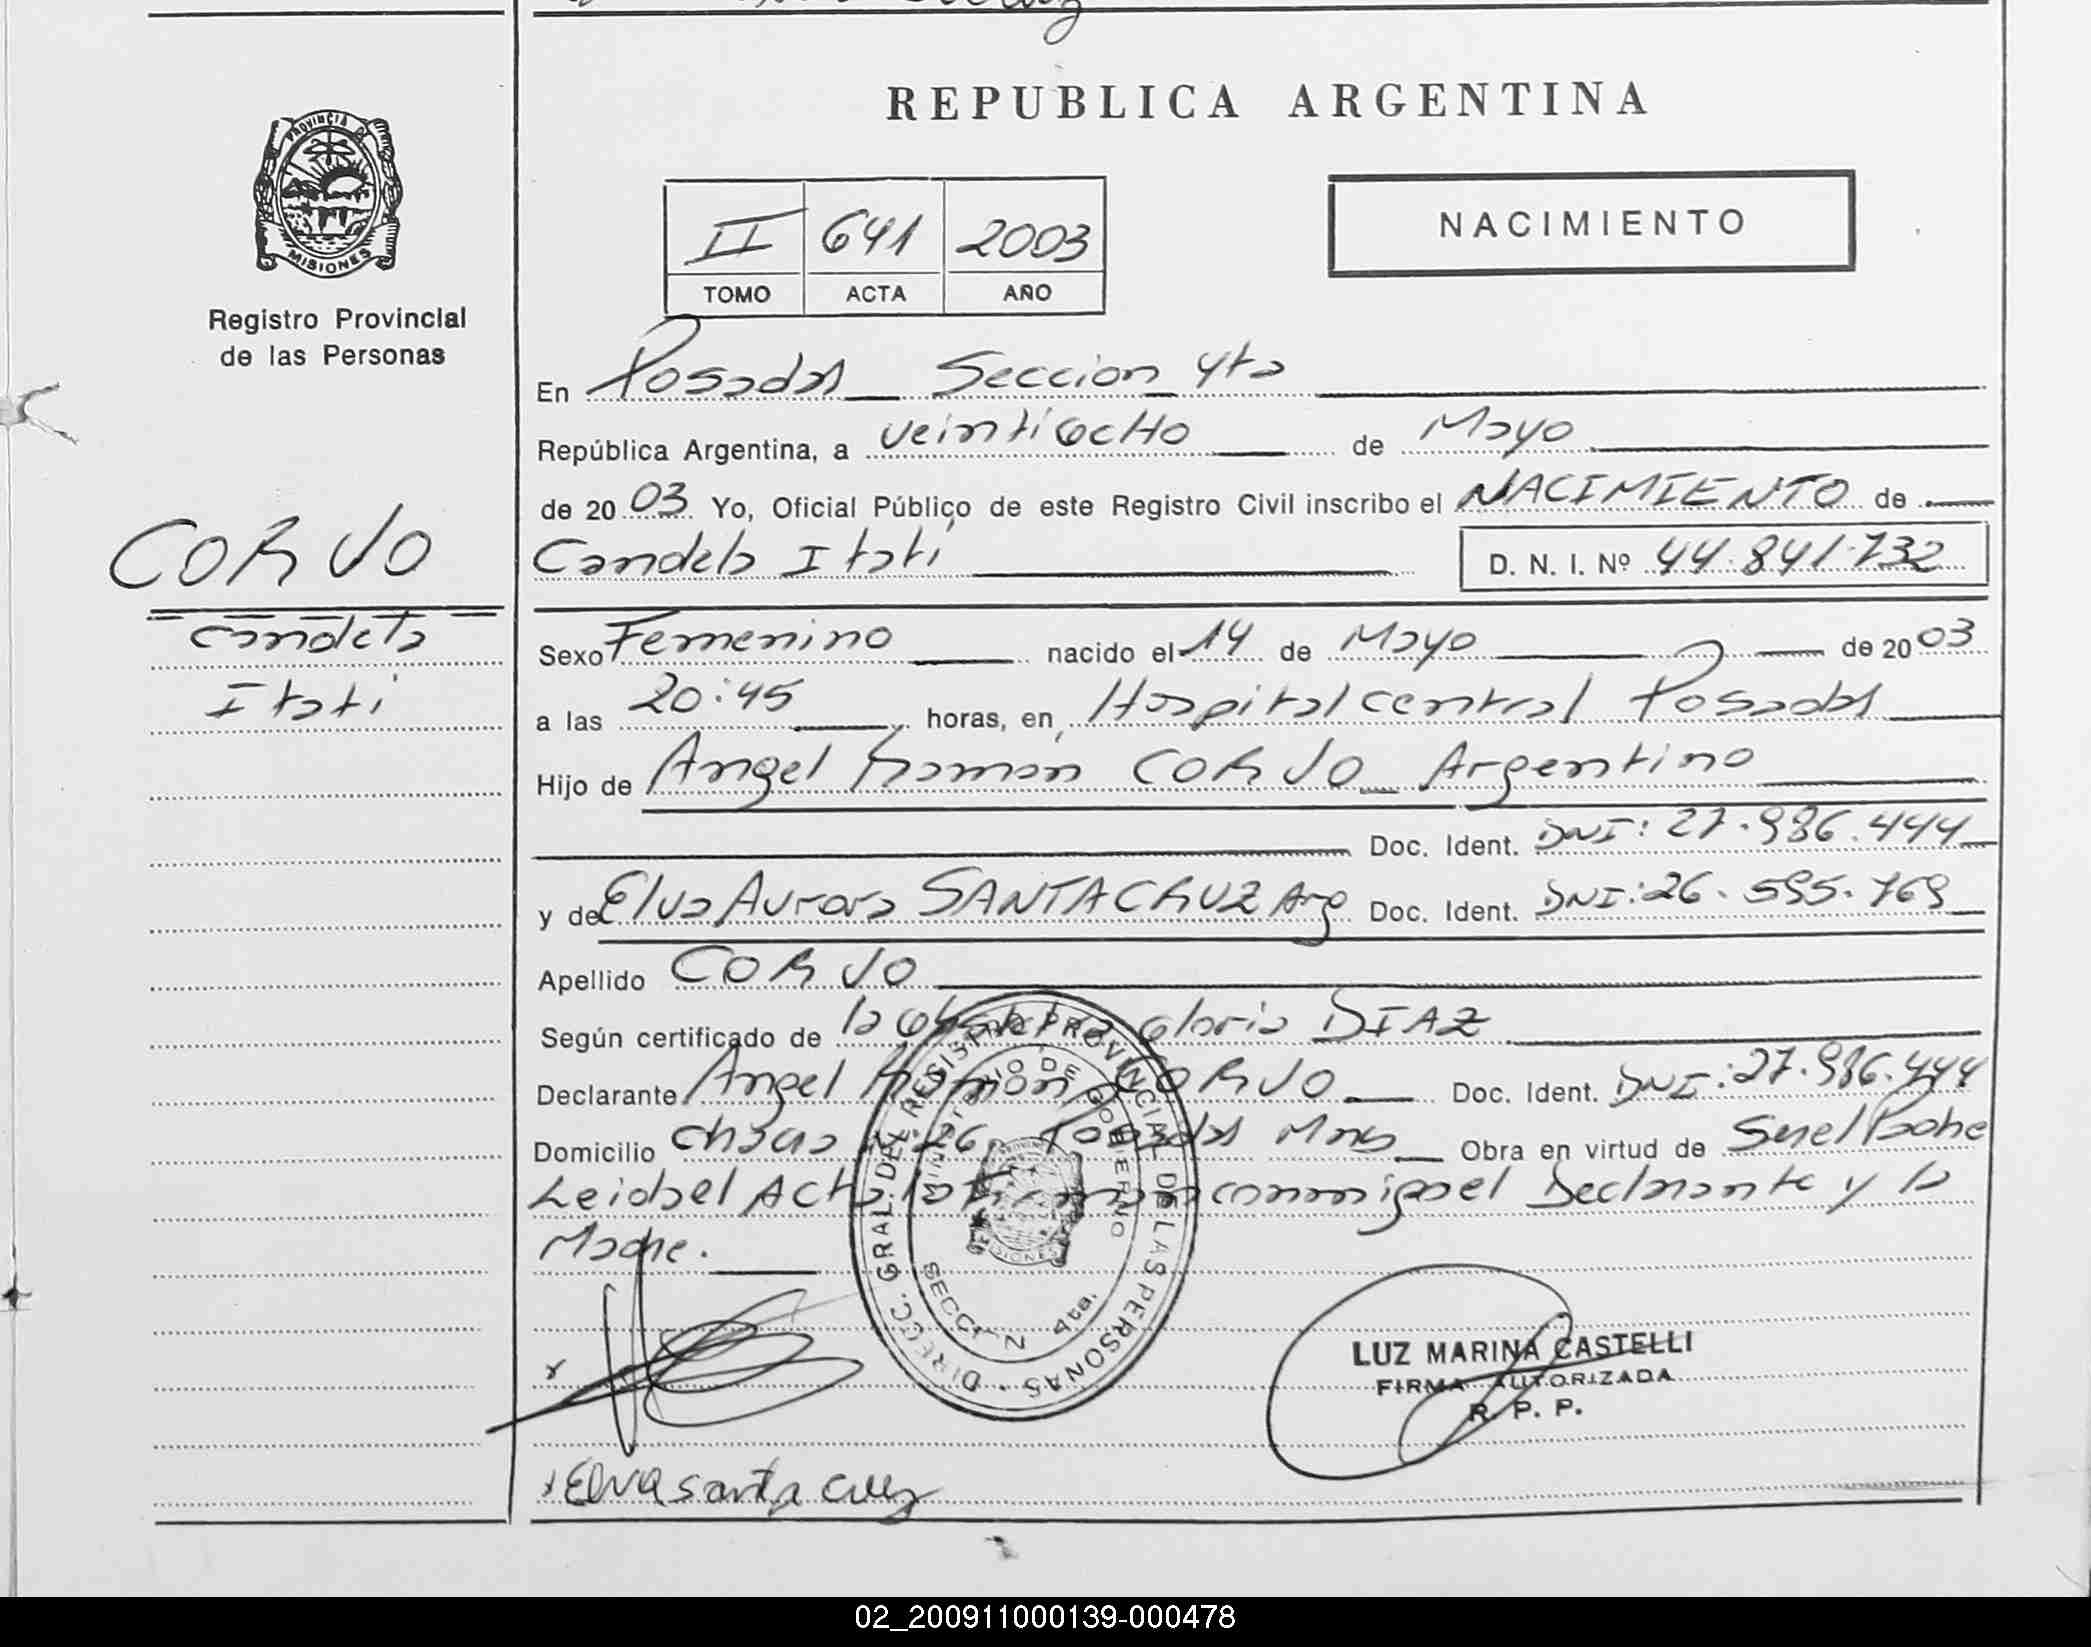 REPUBLICA ARGENTINA
PROVINCIA DE
MISIONES
Registro Provincial
de las Personas
II 641 2003
TOMO ACTA AÑO
NACIMIENTO
En Posadas Seccion 4ta
República Argentina, a veintiocho de Mayo
de 20 03 Yo, Oficial Público de este Registro Civil inscribo el NACIMIENTO de
Candela Itatí D. N. I. Nº 44.841.732
CORVO
Candela
Itati
Sexo Femenino nacido el 14 de Mayo de 20 03
a las 20:45 horas, en Hospital central Posadas
Hijo de Angel Ramón CORVO Argentino
Doc. Ident. DNI: 27.986.444
y de Elva Aurora SANTACRUZ Arg Doc. Ident. DNI: 26.595.769
Apellido CORVO
Según certificado de la obstetra Gloria DIAZ
Declarante Angel Ramón CORVO Doc. Ident. DNI: 27.986.444
Domicilio Chacra Nº 26 Posadas Mnes Obra en virtud de Ser el Padre
Leida el Acta la firman conmigo el Declarante y la
Madre.
DIRECC. GRAL. DEL REGISTRO PROVINCIAL DE LAS PERSONAS
MINISTERIO DE GOBIERNO
SECCION 4ta.
LUZ MARINA CASTELLI
FIRMA AUTORIZADA
R. P. P.
x
x Elva Santa Cruz
02_200911000139-000478